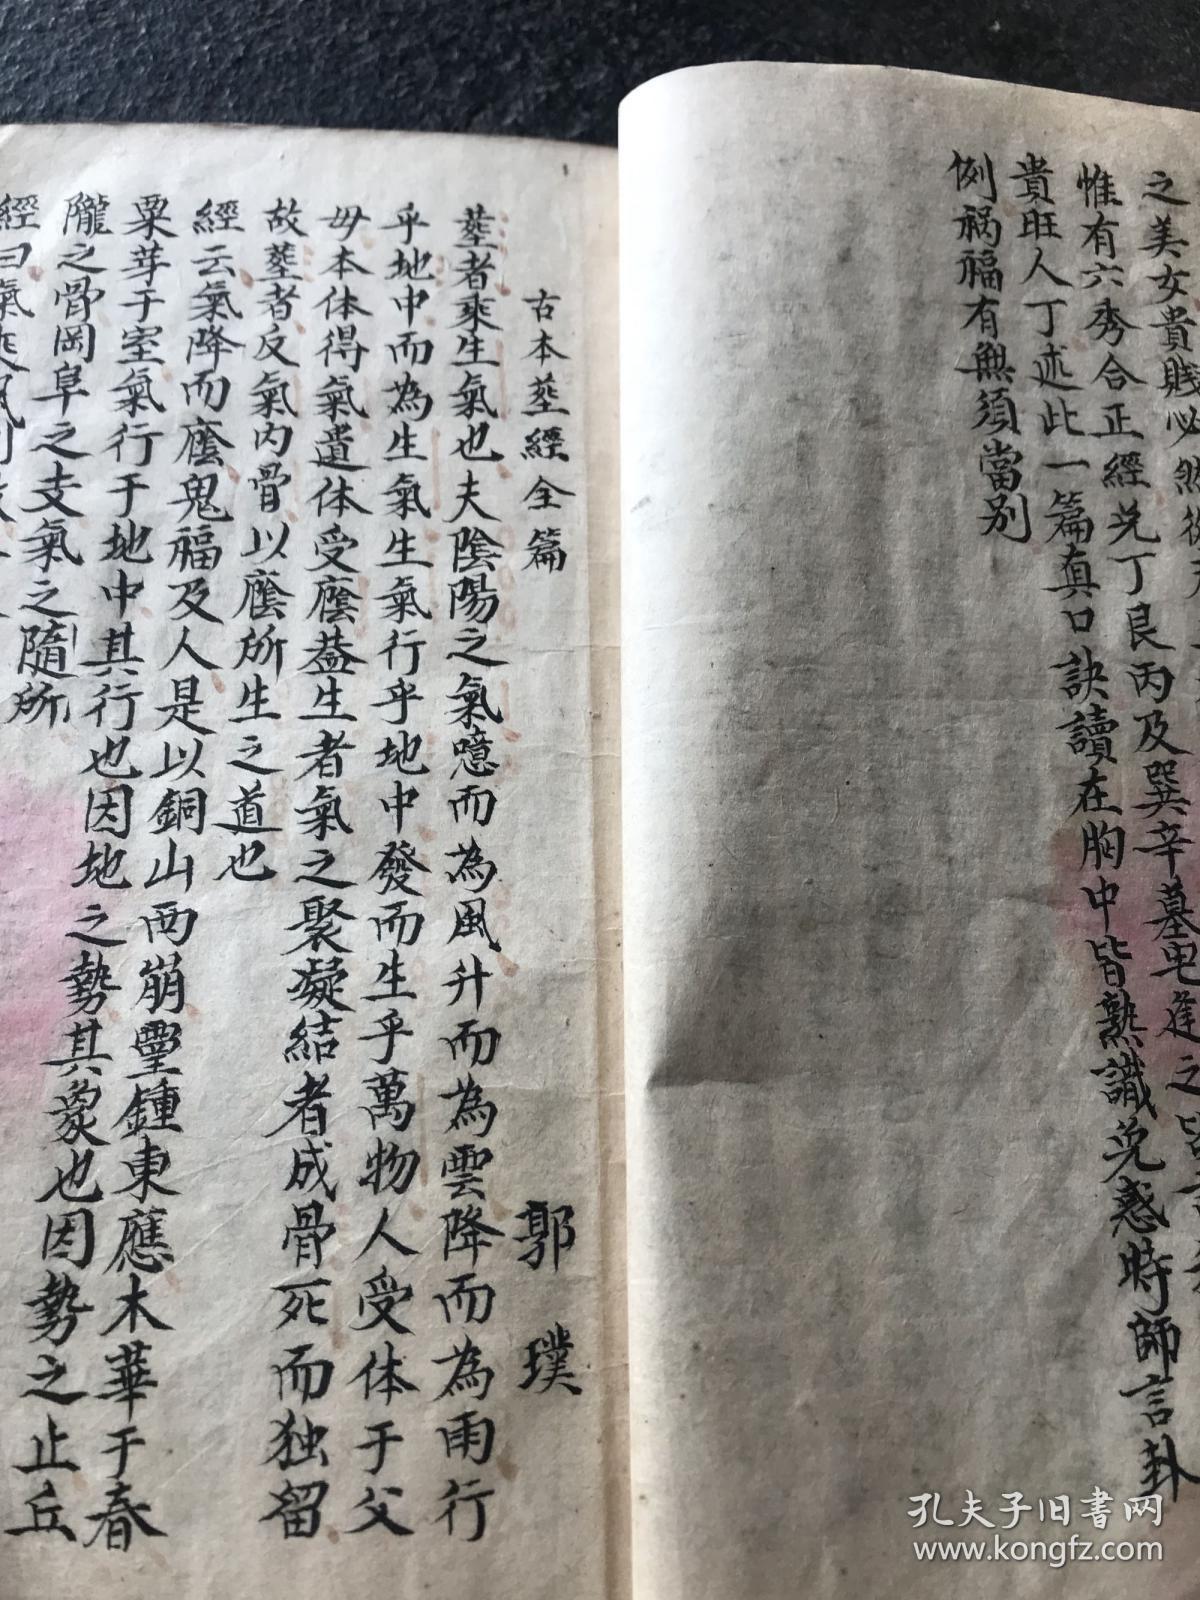 之美女貴賤必然
惟有六秀合正經兑丁艮丙及巽辛墓宅逢之
貴旺人丁述此一篇真口訣讀在胸中皆熟識免惑時師言卦
例禍福有無須當别
古本塟經全篇
郭璞
塟者乘生氣也夫陰陽之氣噫而為風升而為雲降而為雨行
乎地中而為生氣生氣行乎地中發而生乎萬物人受体于父
母本体得氣遺体受廕葢生者氣之聚凝結者成骨死而独留
故塟者反氣内骨以廕所生之道也
經云氣降而廕鬼福及人是以銅山西崩靈鍾東應木華于春
粟芽于室氣行于地中其行也因地之勢其象也因勢之止丘
隴之骨岡阜之支氣之隨所
經曰氣
孔夫子旧书网
www.kongfz.com